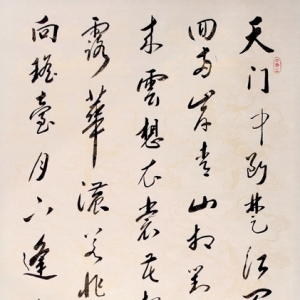 天门中断楚江
回两岸青山相對
来雲想衣裳花
露華濃若非
向瑶臺月下逢